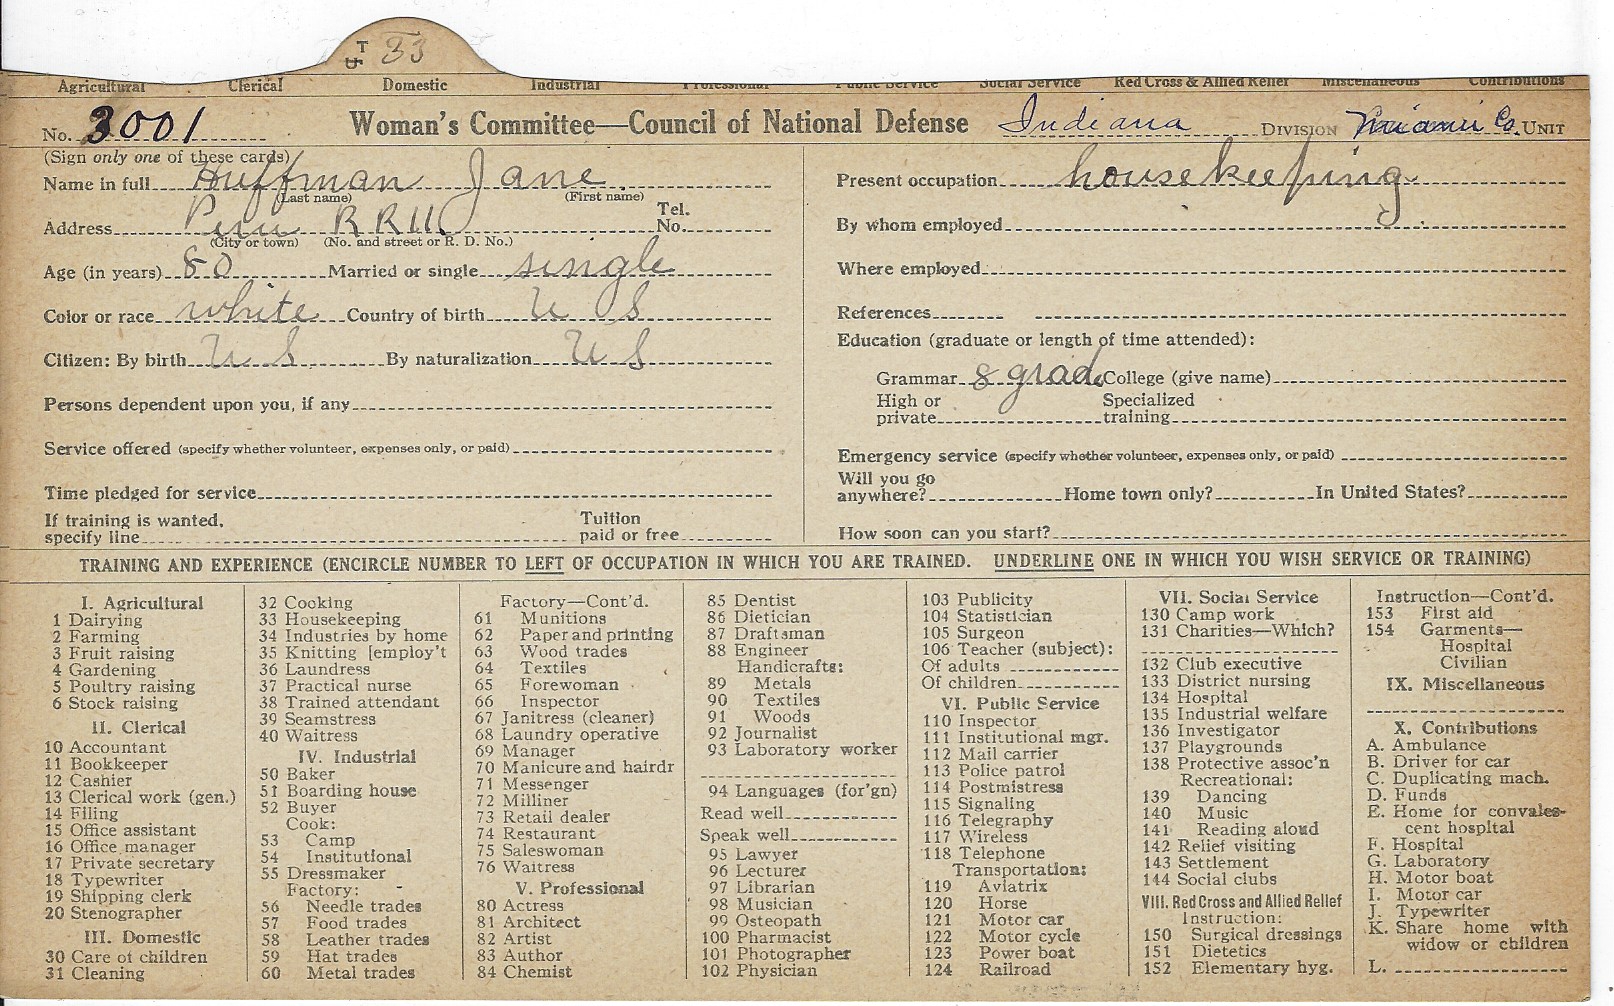 T 33
Agricultural Clerical Domestic Industrial Professional Public Service Social Service Red Cross & Allied Relief Miscellaneous Contributions
No. 3001 Woman's Committee—Council of National Defense Indiana DIVISION Miami Co. UNIT
(Sign only one of these cards)
Name in full Huffman Jane
(Last name) (First name)
Address Peru R R 11 Tel. No.
(City or town) (No. and street or R. D. No.)
Age (in years) 80 Married or single single
Color or race white Country of birth U S
Citizen: By birth U S By naturalization U S
Persons dependent upon you, if any
Service offered (specify whether volunteer, expenses only, or paid)
Time pledged for service
If training is wanted, specify line Tuition paid or free
Present occupation housekeeping
By whom employed
Where employed
References
Education (graduate or length of time attended):
Grammar 8 grade College (give name)
High or private Specialized training
Emergency service (specify whether volunteer, expenses only, or paid)
Will you go anywhere? Home town only? In United States?
How soon can you start?
TRAINING AND EXPERIENCE (ENCIRCLE NUMBER TO LEFT OF OCCUPATION IN WHICH YOU ARE TRAINED. UNDERLINE ONE IN WHICH YOU WISH SERVICE OR TRAINING)
I. Agricultural
1 Dairying
2 Farming
3 Fruit raising
4 Gardening
5 Poultry raising
6 Stock raising
II. Clerical
10 Accountant
11 Bookkeeper
12 Cashier
13 Clerical work (gen.)
14 Filing
15 Office assistant
16 Office manager
17 Private secretary
18 Typewriter
19 Shipping clerk
20 Stenographer
III. Domestic
30 Care of children
31 Cleaning
32 Cooking
33 Housekeeping
34 Industries by home
35 Knitting [employ't
36 Laundress
37 Practical nurse
38 Trained attendant
39 Seamstress
40 Waitress
IV. Industrial
50 Baker
51 Boarding house
52 Buyer
Cook:
53 Camp
54 Institutional
55 Dressmaker
Factory:
56 Needle trades
57 Food trades
58 Leather trades
59 Hat trades
60 Metal trades
Factory—Cont'd.
61 Munitions
62 Paper and printing
63 Wood trades
64 Textiles
65 Forewoman
66 Inspector
67 Janitress (cleaner)
68 Laundry operative
69 Manager
70 Manicure and hairdr
71 Messenger
72 Milliner
73 Retail dealer
74 Restaurant
75 Saleswoman
76 Waitress
V. Professional
80 Actress
81 Architect
82 Artist
83 Author
84 Chemist
85 Dentist
86 Dietician
87 Draftsman
88 Engineer
Handicrafts:
89 Metals
90 Textiles
91 Woods
92 Journalist
93 Laboratory worker
94 Languages (for'gn)
Read well
Speak well
95 Lawyer
96 Lecturer
97 Librarian
98 Musician
99 Osteopath
100 Pharmacist
101 Photographer
102 Physician
103 Publicity
104 Statistician
105 Surgeon
106 Teacher (subject):
Of adults
Of children
VI. Public Service
110 Inspector
111 Institutional mgr.
112 Mail carrier
113 Police patrol
114 Postmistress
115 Signaling
116 Telegraphy
117 Wireless
118 Telephone
Transportation:
119 Aviatrix
120 Horse
121 Motor car
122 Motor cycle
123 Power boat
124 Railroad
VII. Social Service
130 Camp work
131 Charities—Which?
132 Club executive
133 District nursing
134 Hospital
135 Industrial welfare
136 Investigator
137 Playgrounds
138 Protective assoc'n
Recreational:
139 Dancing
140 Music
141 Reading aloud
142 Relief visiting
143 Settlement
144 Social clubs
VIII. Red Cross and Allied Relief
Instruction:
150 Surgical dressings
151 Dietetics
152 Elementary hyg.
Instruction—Cont'd.
153 First aid
154 Garments—
Hospital
Civilian
IX. Miscellaneous
X. Contributions
A. Ambulance
B. Driver for car
C. Duplicating mach.
D. Funds
E. Home for convales-
cent hospital
F. Hospital
G. Laboratory
H. Motor boat
I. Motor car
J. Typewriter
K. Share home with
widow or children
L.